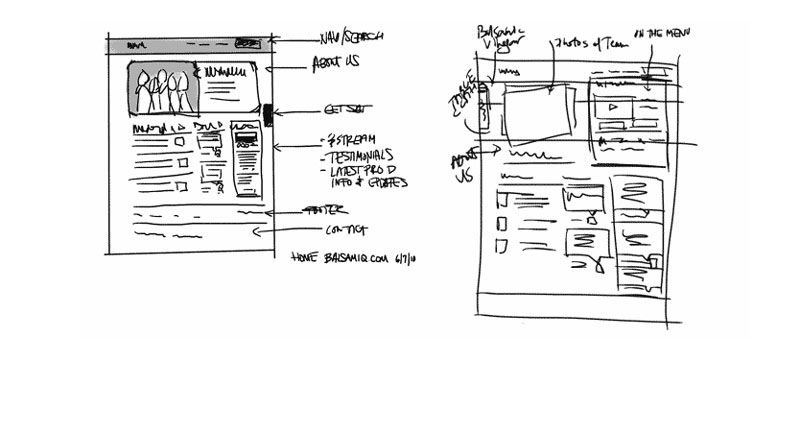 NAV/SEARCH
ABOUT US
GET SAT
- STREAM
- TESTIMONIALS
- LATEST PROD
INFO & UPDATES
FOOTER
CONTACT
HOME BALSAMIQ.COM 6/7/10
Balsamic
Vinegar
Photos of Team
ON THE MENU
ABOUT
US